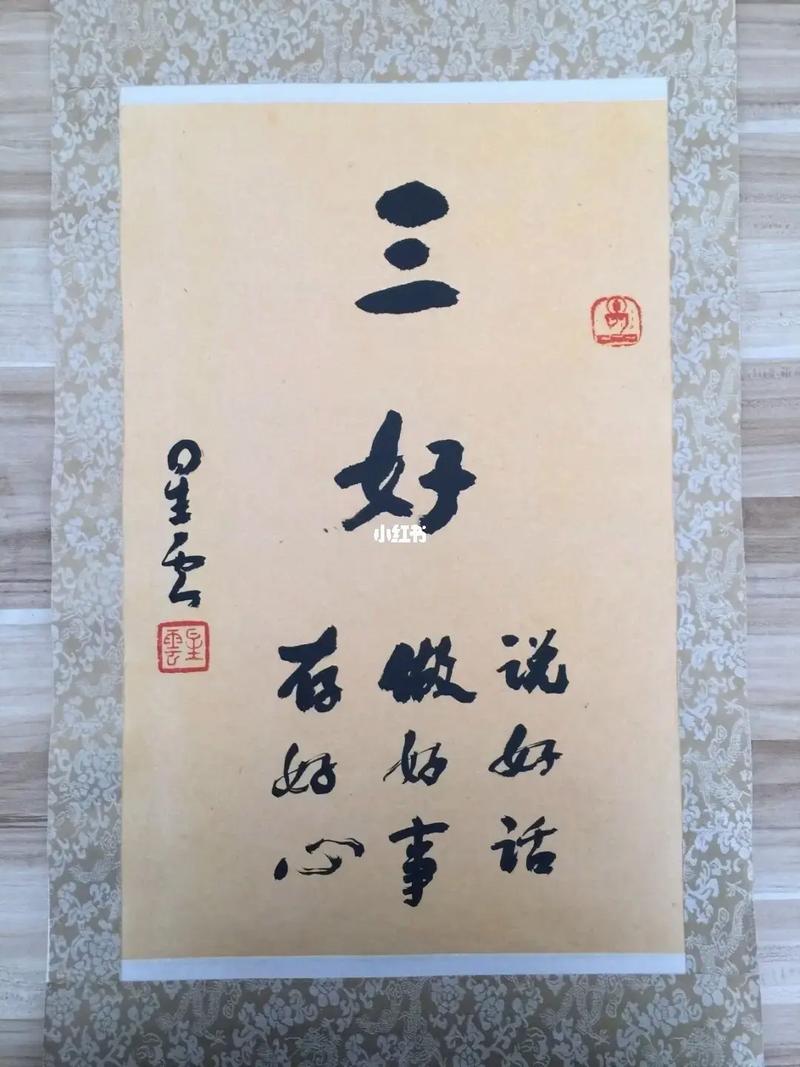 三好
说好话
做好事
存好心
星雲
星雲
小红书